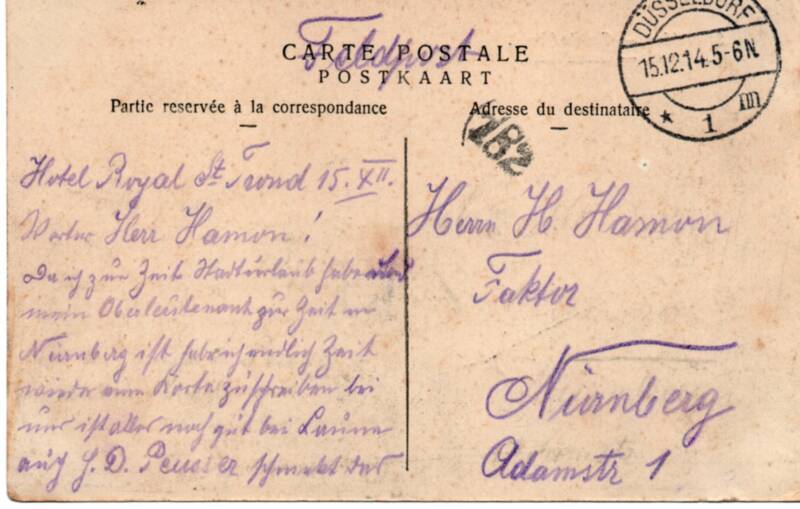 Feldpost
CARTE POSTALE
POSTKAART
Partie reservée à la correspondance
Adresse du destinataire
DÜSSELDORF
15.12.14.5-6N
* 1 m
182
Hotel Royal St. Trond 15. XII.
Werter Herr Hamon!
Da ich zur Zeit Stadturlaub habe und
mein Oberleutenant zur Zeit in
Nürnberg ist hab ich endlich Zeit
wieder eine Karte zu schreiben bei
uns ist alles noch gut bei Laune
auch H. D. schmekt das
Herrn H. Hamon
Faktor
Nürnberg
Adamstr 1